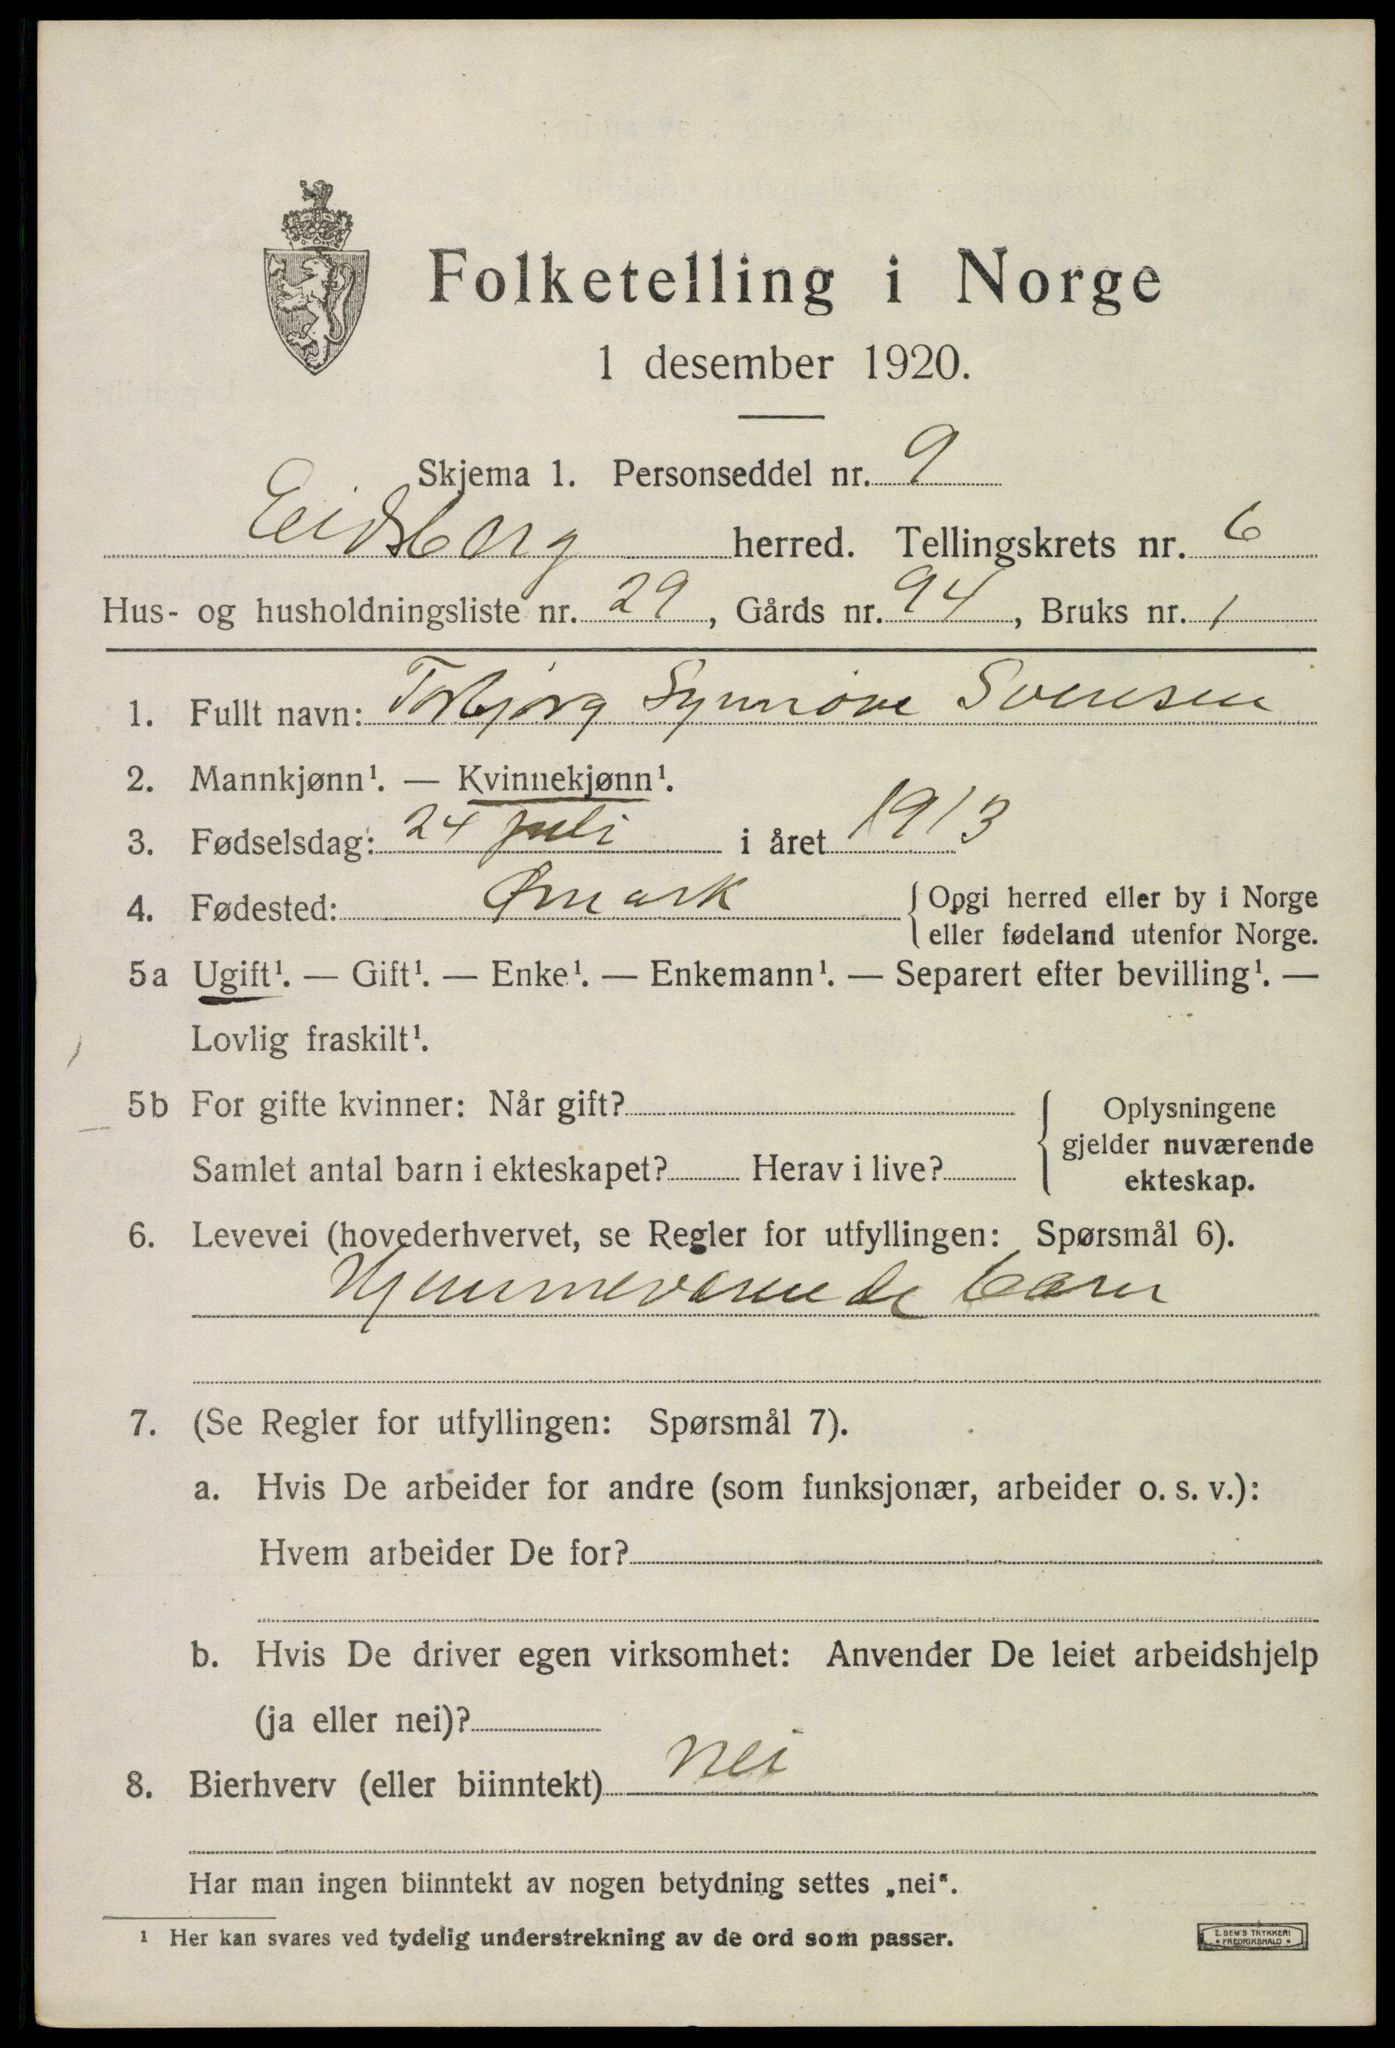 Folketelling i Norge
1 desember 1920.
Skjema 1. Personseddel nr. 9
Eidsberg herred. Tellingskrets nr. 6
Hus- og husholdningsliste nr. 29, Gårds nr. 94, Bruks nr. 1
1. Fullt navn: Torbjørg Synnøve Svensen
2. Mannkjønn¹. — Kvinnekjønn¹.
3. Fødselsdag: 24 juli i året 1913
4. Fødested: Ømark { Opgi herred eller by i Norge
eller fødeland utenfor Norge.
5a Ugift¹. — Gift¹. — Enke¹. — Enkemann¹. — Separert efter bevilling¹. —
Lovlig fraskilt¹.
5b For gifte kvinner: Når gift?
Samlet antal barn i ekteskapet? Herav i live?
{ Oplysningene
gjelder nuværende
ekteskap.
6. Levevei (hovederhvervet, se Regler for utfyllingen: Spørsmål 6).
Hjemmeværende barn
7. (Se Regler for utfyllingen: Spørsmål 7).
a. Hvis De arbeider for andre (som funksjonær, arbeider o. s. v.):
Hvem arbeider De for?
b. Hvis De driver egen virksomhet: Anvender De leiet arbeidshjelp
(ja eller nei)?
8. Bierhverv (eller biinntekt) nei
Har man ingen biinntekt av nogen betydning settes „nei“.
¹ Her kan svares ved tydelig understrekning av de ord som passer.
E. SEM'S TRYKKERI
* FREDRIKSHALD *